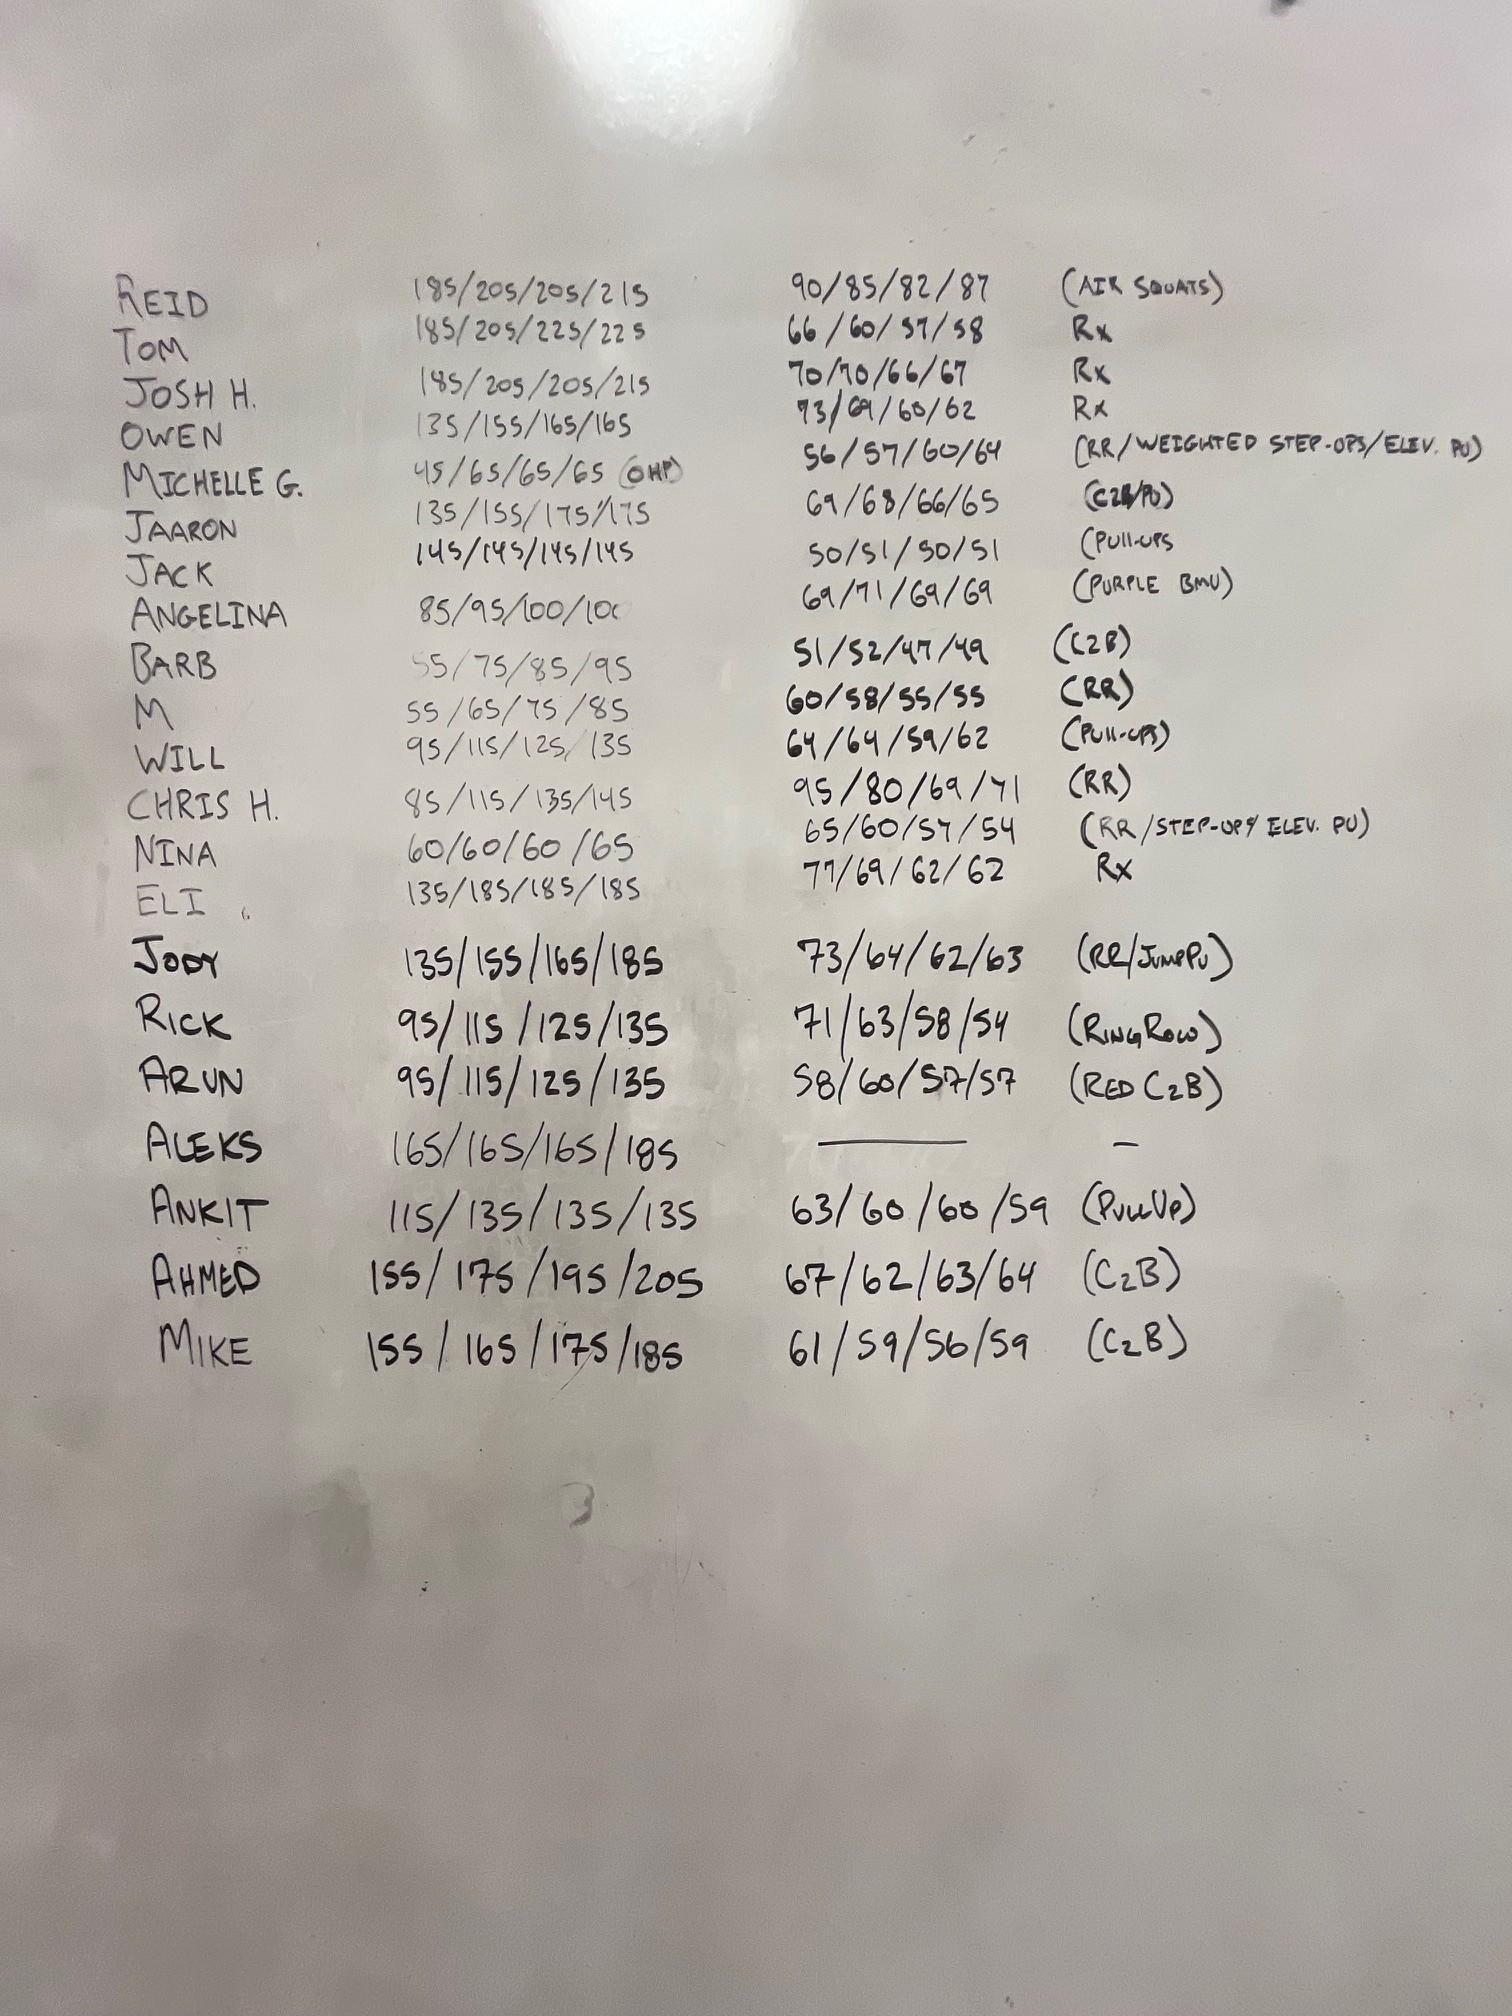 REID 185/205/205/215 90/85/82/87 (AIR SQUATS)
TOM 185/205/225/225 66/60/57/58 Rx
JOSH H. 185/205/205/215 70/70/66/67 Rx
OWEN 135/155/165/165 73/69/60/62 Rx
MICHELLE G. 45/65/65/65 (OHP) 56/57/60/64 (RR/WEIGHTED STEP-UPS/ELEV. PU)
JAARON 135/155/175/175 69/68/66/65 (C2B/PU)
JACK 145/145/145/145 50/51/50/51 (PUll-UPS
ANGELINA 85/95/100/100 69/71/69/69 (PURPLE BMU)
BARB 55/75/85/95 51/52/47/49 (C2B)
M 55/65/75/85 60/58/55/55 (RR)
WILL 95/115/125/135 64/64/59/62 (PUll-UPS)
CHRIS H. 85/115/135/145 95/80/69/71 (RR)
NINA 60/60/60/65 65/60/57/54 (RR/STEP-UPS/ ELEV. PU)
ELI 135/185/185/185 77/69/62/62 Rx
JODY 135/155/165/185 73/64/62/63 (RR/JUMPPU)
RICK 95/115/125/135 71/63/58/54 (RINGROW)
ARUN 95/115/125/135 58/60/57/57 (RED C2B)
ALEKS 165/165/165/185 — –
ANKIT 115/135/135/135 63/60/60/59 (PULLUP)
AHMED 155/175/195/205 67/62/63/64 (C2B)
MIKE 155/165/175/185 61/59/56/59 (C2B)